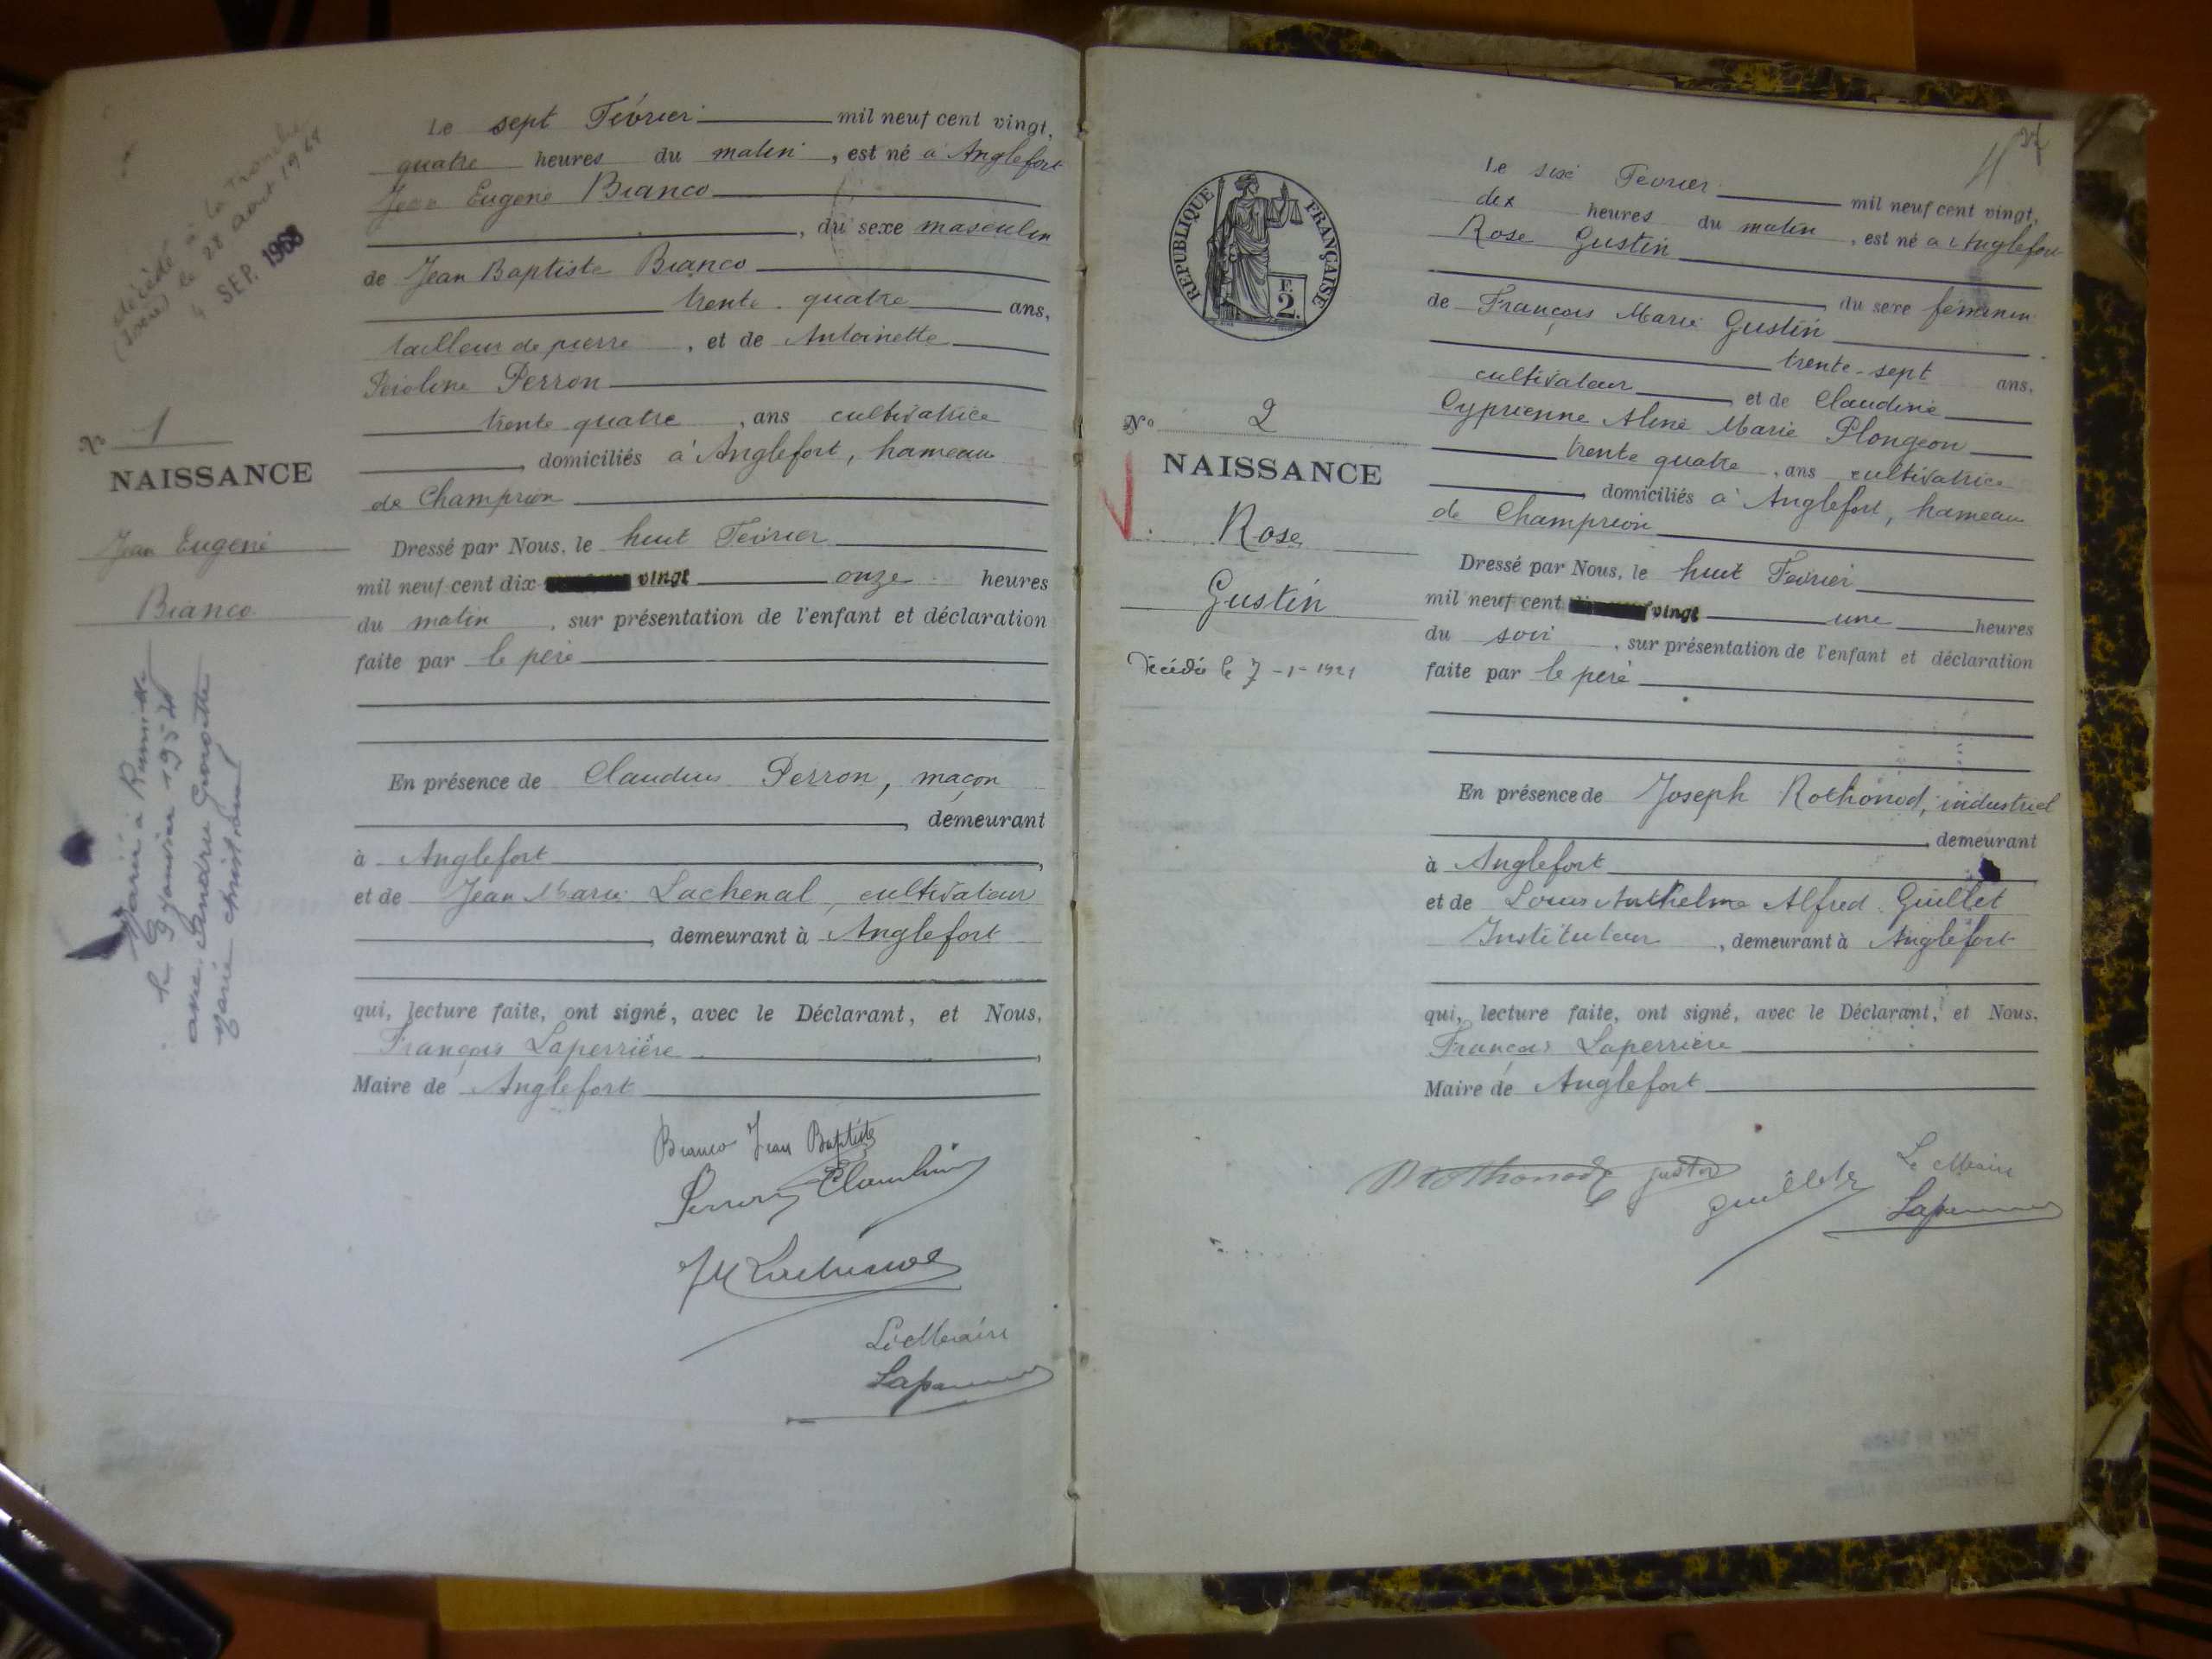 décédé à la Tronche
(Isère) le 28 août 1968
4 SEP. 1968
N° 1
NAISSANCE
Jean Eugène
Bianco
Marié à Rumilly
le 9 janvier 1954
avec Sandra
Marie
Le sept Février mil neuf cent vingt,
quatre heures du matin, est né à Anglefort
Jean Eugène Bianco
, du sexe masculin
de Jean Baptiste Bianco
trente-quatre ans,
tailleur de pierre, et de Antoinette
Perron
trente quatre, ans cultivatrice
, domiciliés à Anglefort, hameau
de Champrion
Dressé par Nous, le huit Février
mil neuf cent dix vingt onze heures
du matin, sur présentation de l'enfant et déclaration
faite par le père
En présence de Claudius Perron, maçon
, demeurant
à Anglefort,
et de Jean Marie Lachenal, cultivateur
, demeurant à Anglefort
qui, lecture faite, ont signé, avec le Déclarant, et Nous,
François Laperrière,
Maire de Anglefort
Bianco Jean Baptiste
Perron Claudius
JM Lachenal
Le Maire
Laperrière
RÉPUBLIQUE FRANÇAISE
F.
2.
N° 2
NAISSANCE
Rose
Gustin
Décédée le 7-1-1921
Le six Février mil neuf cent vingt,
dix heures du matin, est né à Anglefort
Rose Gustin
du sexe féminin
de François Marie Gustin
trente-sept ans,
cultivateur, et de Claudine
Cyprienne Aline Marie Plongeon
trente quatre, ans cultivatrice
, domiciliés à Anglefort, hameau
de Champrion
Dressé par Nous, le huit Février
mil neuf cent vingt une heures
du soir, sur présentation de l'enfant et déclaration
faite par le père
En présence de Joseph Rothonod, industriel
, demeurant
à Anglefort
et de Louis Anthelme Alfred Guillet
Instituteur, demeurant à Anglefort
qui, lecture faite, ont signé, avec le Déclarant, et Nous,
François Laperrière
Maire de Anglefort
Rothonod Gustin Guillet
Le Maire
Laperrière